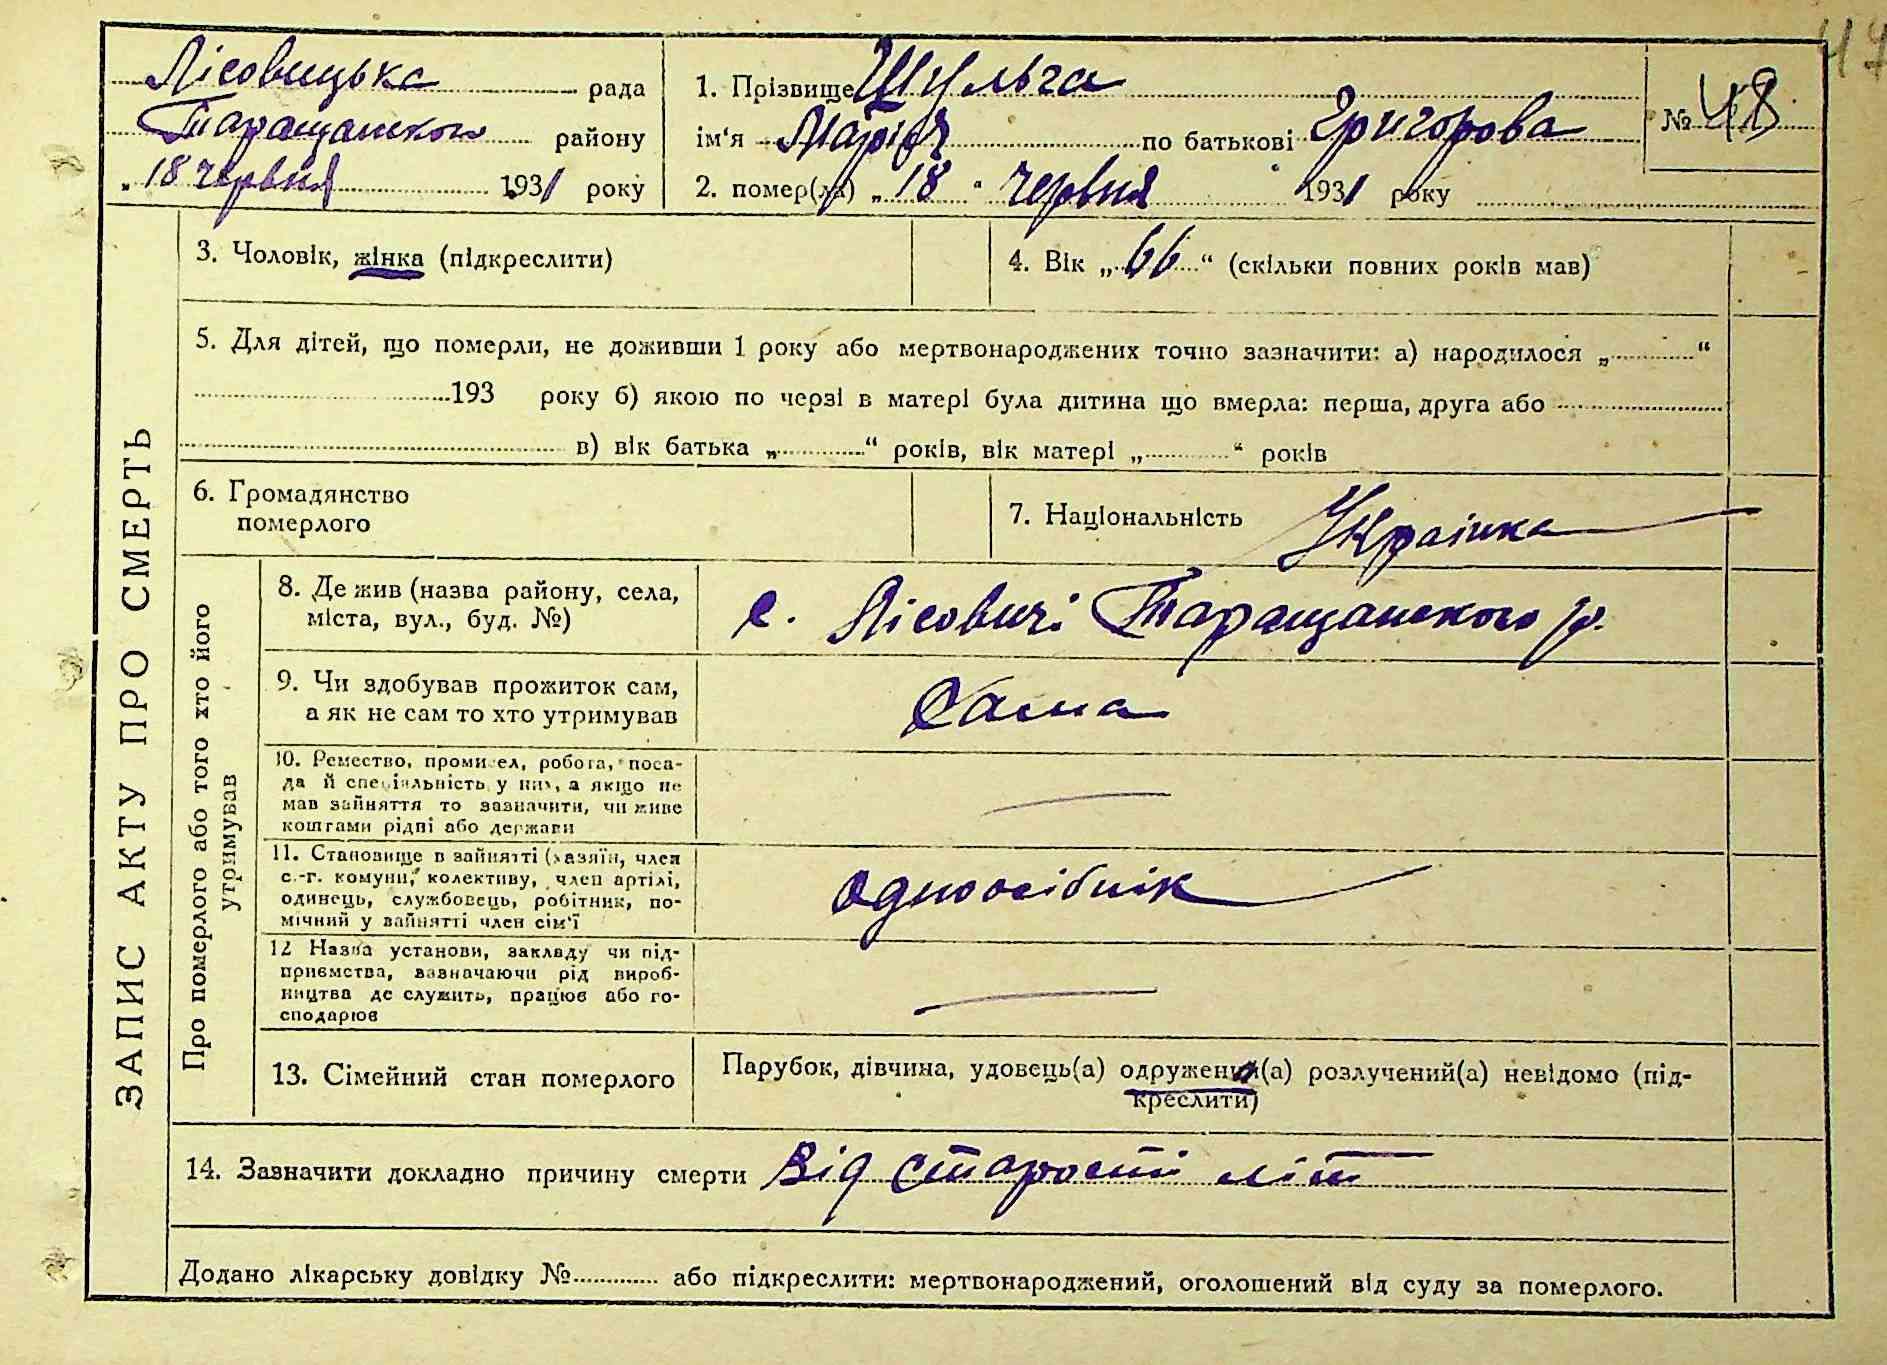 47
Лісовицька рада
Таращанського району
„18 червня 1931 року
1. Прізвище Шульга
ім‘я Марія по батькові Григорова
2. помер(ла) „18“ червня 1931 року
№ 48
ЗАПИС АКТУ ПРО СМЕРТЬ
3. Чоловік, жінка (підкреслити)
4. Вік „66“ (скільки повних років мав)
5. Для дітей, що померли, не доживши 1 року або мертвонароджених точно зазначити: а) народилося „............“
193 року б) якою по черзі в матері була дитина що вмерла: перша, друга або
в) вік батька „............“ років, вік матері „............“ років
6. Громадянство
померлого
7. Національність Українка
Про померлого або того хто його
утримував
8. Де жив (назва району, села,
міста, вул., буд. №)
с. Лісовичі Таращанського р.
9. Чи здобував прожиток сам,
а як не сам то хто утримував
Сама
10. Ремество, промисел, робота, поса-
да й спеціальність у них, а якщо не
мав зайняття то зазначити, чи живе
коштами рідні або держави
11. Становище в зайнятті (хазяїн, член
с.-г. комуни, колективу, член артілі,
одинець, службовець, робітник, по-
мічний у зайнятті член сім‘ї
одноосібнік
12 Назва установи, закладу чи під-
приємства, зазначаючи рід вироб-
ництва де служить, працює або го-
сподарює
13. Сімейний стан померлого
Парубок, дівчина, удовець(а) одружений(а) розлучений(а) невідомо (під-
креслити)
14. Зазначити докладно причину смерти Від старости літ
Додано лікарську довідку №............ або підкреслити: мертвонароджений, оголошений від суду за померлого.